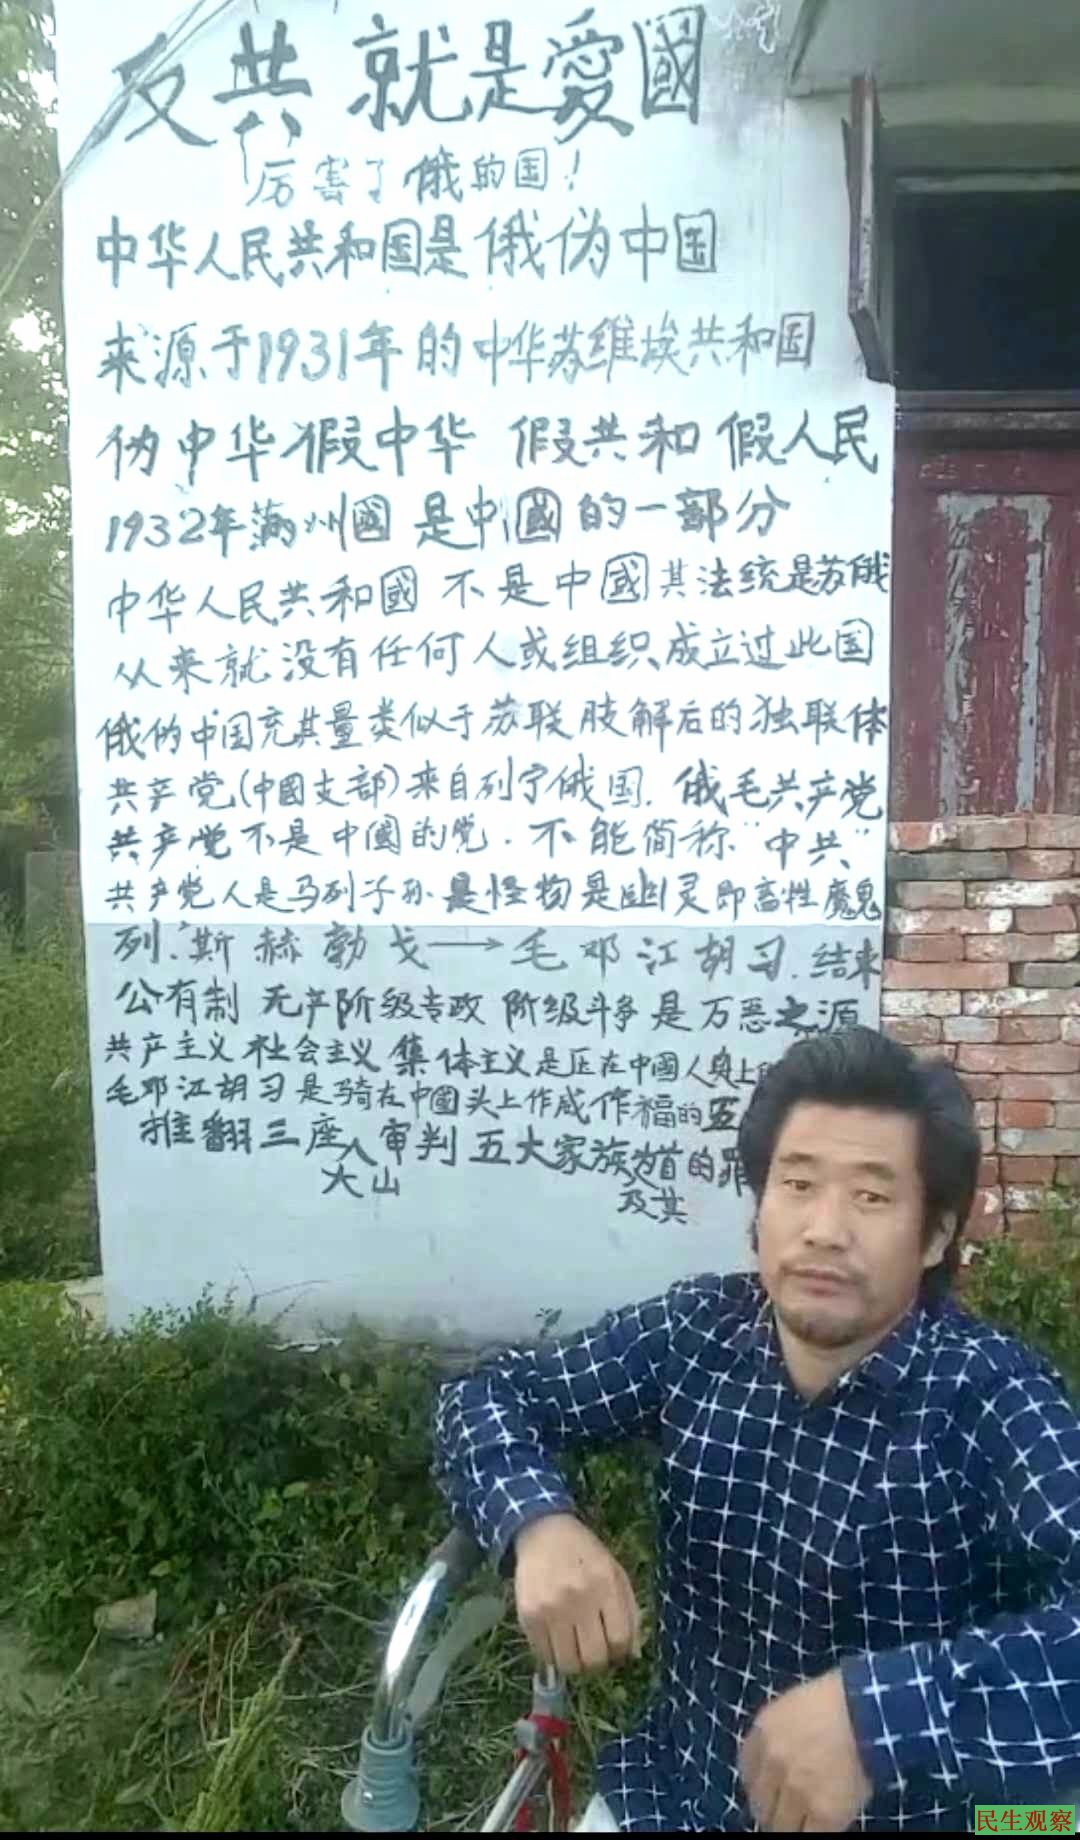 反共就是愛國
厉害了俄的国!
中华人民共和国是俄伪中国
来源于1931年的中华苏维埃共和国
伪中华假中华 假共和假人民
1932年满州國是中國的一部分
中华人民共和國不是中國其法统是苏俄
从来就没有任何人或组织成立过此国
俄的中国充其量类似于苏联肢解后的独联体
共产党(中國支部)来自列宁俄国.俄毛共产党
共产党不是中國的党.不能简称"中共"
共产党人是马列子孙是怪物是幽灵即畜牲魔鬼
列.斯赫勃戈→毛邓江胡习.结来
公有制 无产阶级专政 阶级斗争是万恶之源
共产主义 社会主义 集体主义是压在中國人身上
毛邓江胡习是骑在中國头上作威作福的五
推翻三座大山人审判五大家族及其为首的罪
民生观察